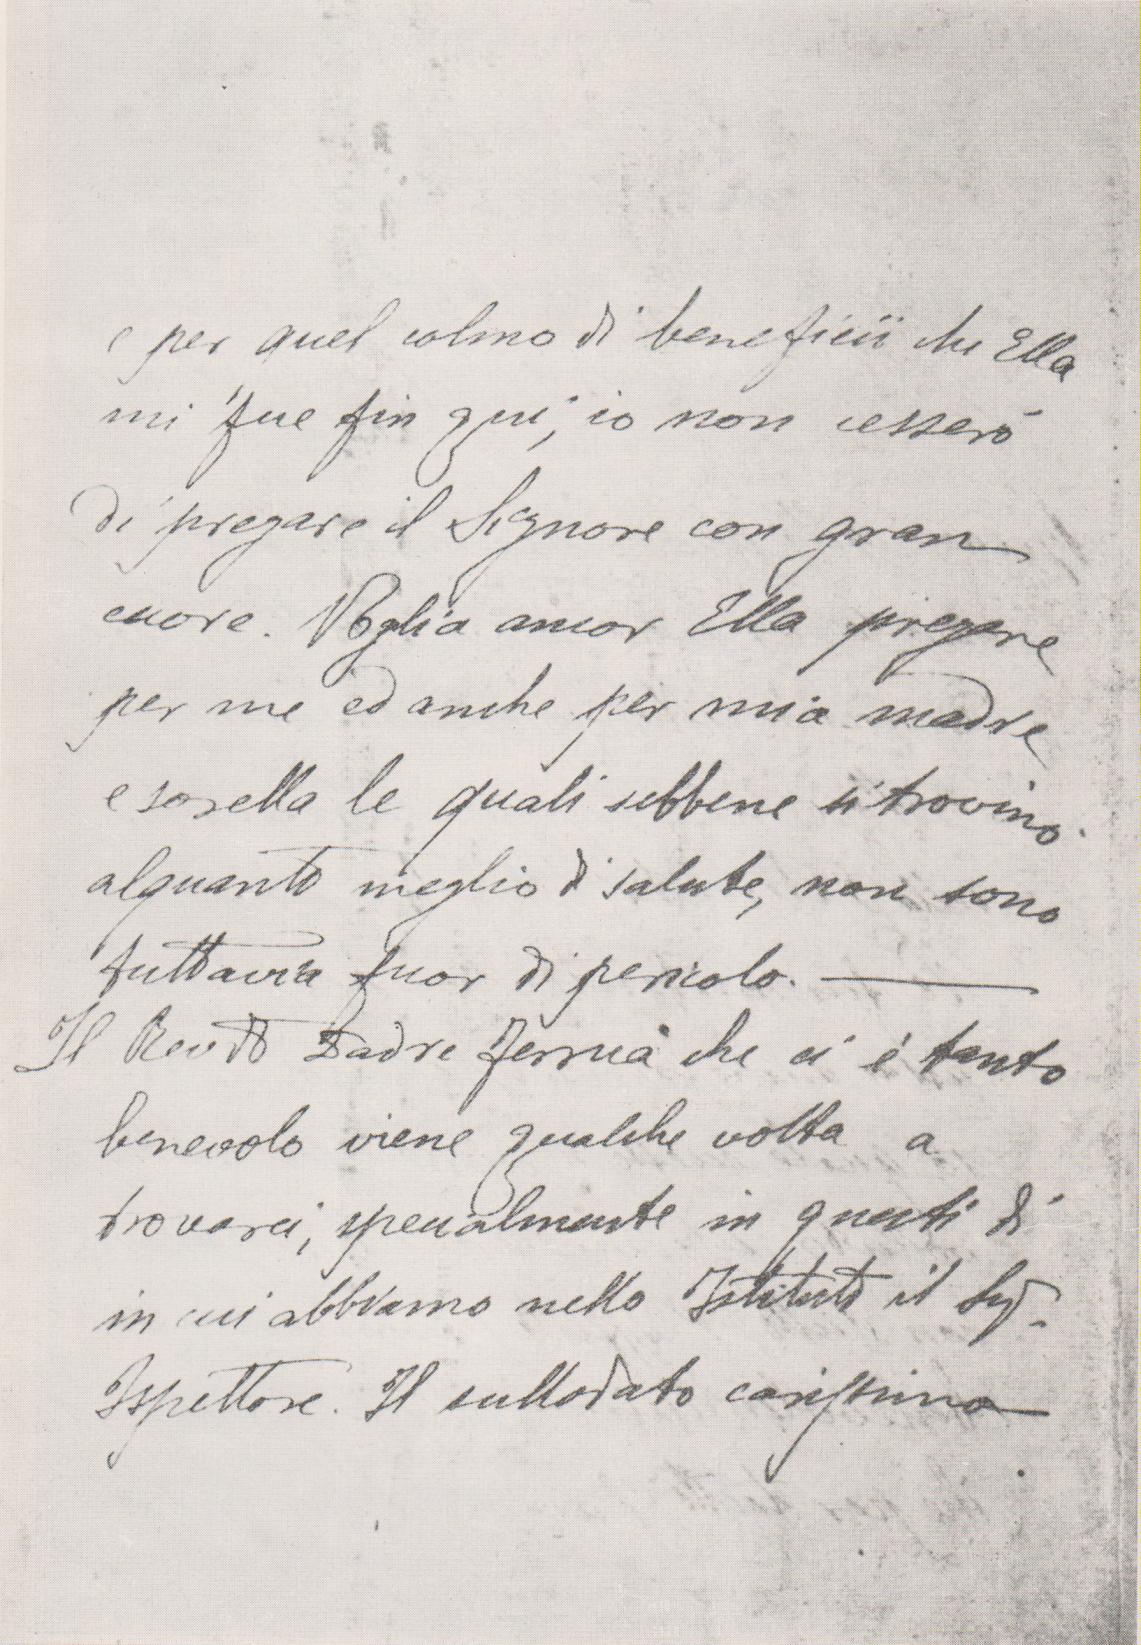 e per quel colmo di beneficii che Ella
mi fue fin qui, io non cesserò
di pregare il Signore con gran
cuore. Voglia ancor Ella pregare
per me ed anche per mia madre
e sorella le quali sebbene si trovino
alquanto meglio di salute, non sono
tuttavia fuor di pericolo.
Il Revdo Padre Ferruà che ci è tanto
benevolo viene qualche volta a
trovarci, specialmente in questi dì
in cui abbiamo nello Istituto il Sig.
Ispettore. Il sullodato carissimo